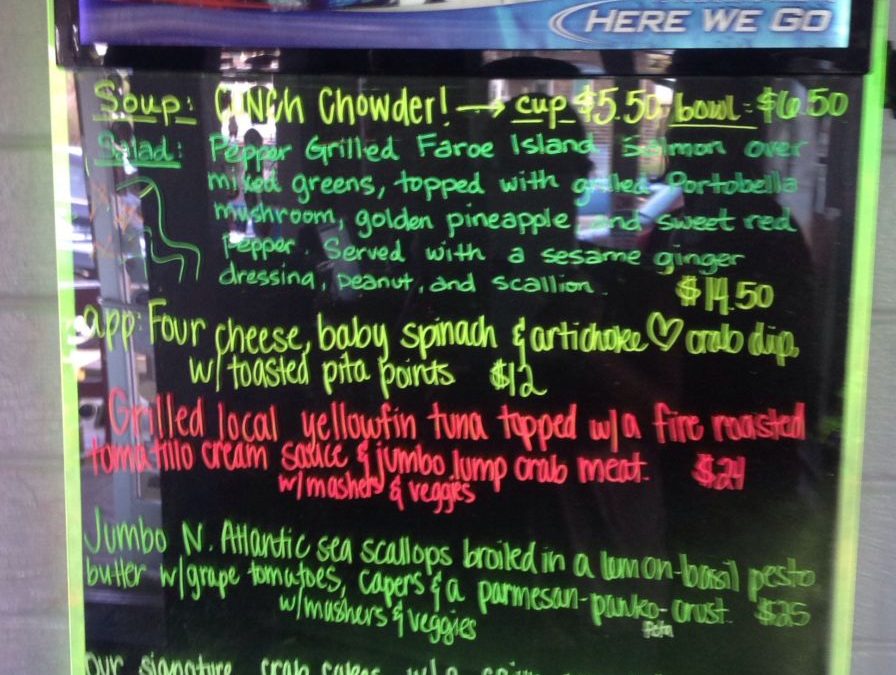 HERE WE GO
Soup: CINCh Chowder! → cup $5.50 bowl = $6.50
Salad: Pepper Grilled Faroe Island Salmon over
mixed greens, topped with grilled Portobella
mushroom, golden pineapple, and sweet red
pepper. Served with a sesame ginger
dressing, peanut, and scallion. $14.50
app: Four cheese, baby spinach & artichoke ♡ crab dip,
w/ toasted pita points $12
Grilled local yellowfin tuna topped w/a fire roasted
tomatillo cream sauce & jumbo lump crab meat. $24
w/mashers & veggies
Jumbo N. Atlantic sea scallops broiled in a lemon-basil pesto
butter w/grape tomatoes, capers & a parmesan-panko-crust. $25
w/mashers & veggies
our signature crab cakes w/ a